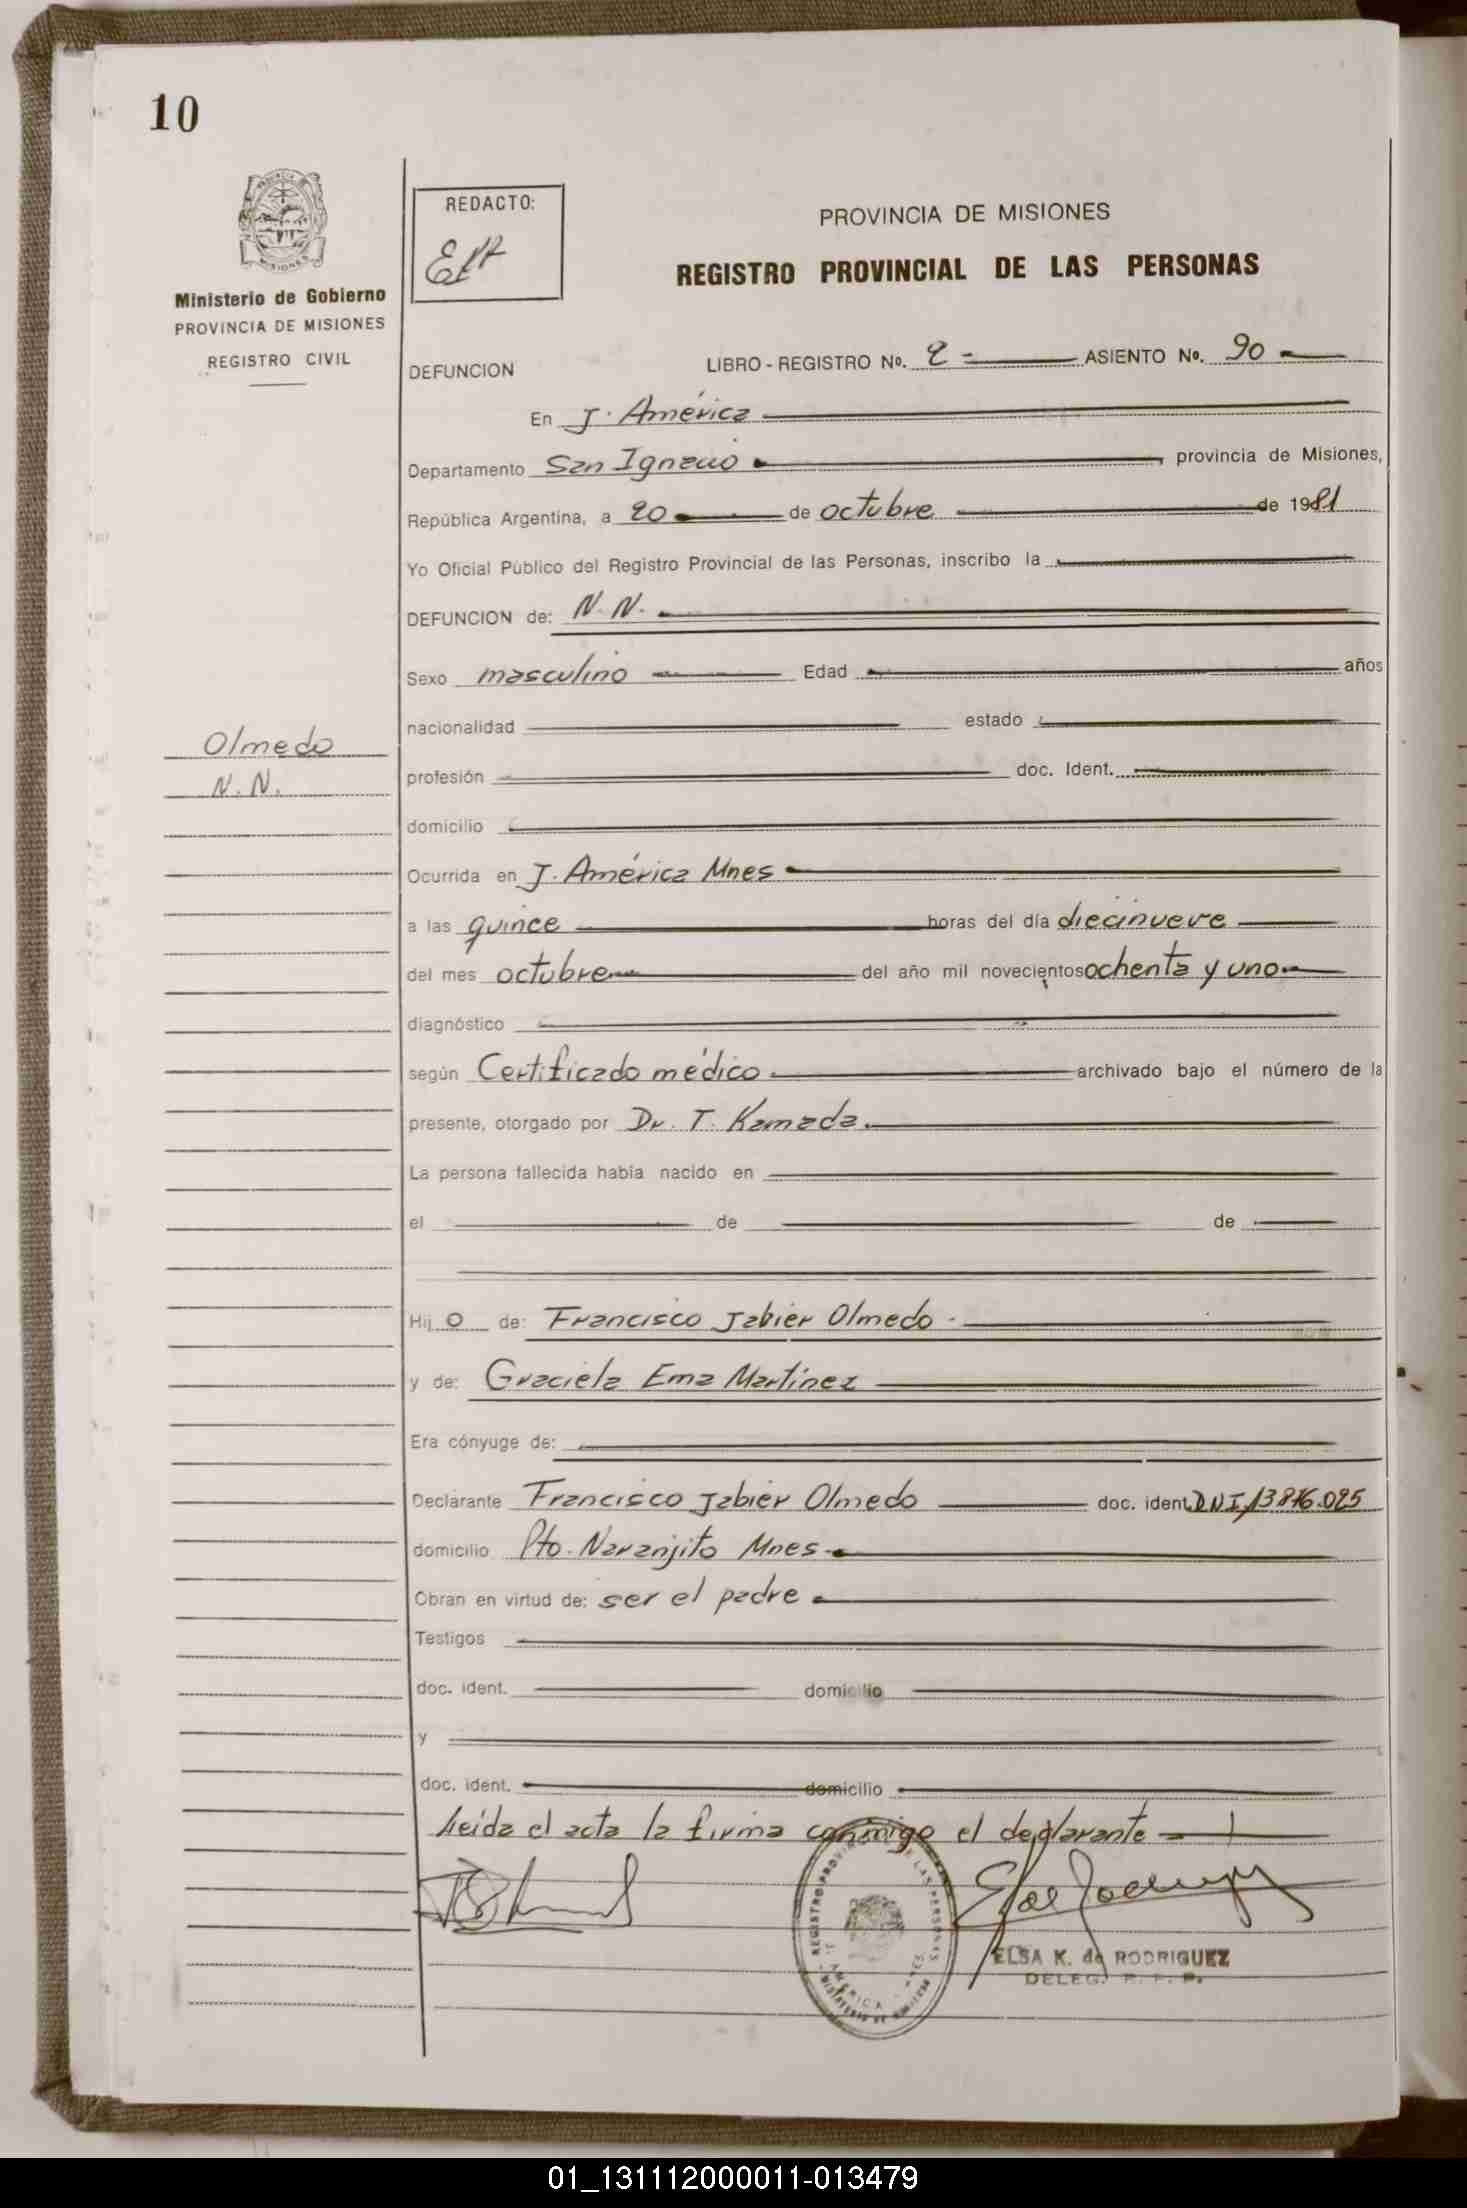 10
Ministerio de Gobierno
PROVINCIA DE MISIONES
REGISTRO CIVIL
REDACTO:
PROVINCIA DE MISIONES
REGISTRO PROVINCIAL DE LAS PERSONAS
DEFUNCION LIBRO - REGISTRO No. 2 - ASIENTO No. 90
En J. América
Departamento San Ignacio, provincia de Misiones,
República Argentina, a 20 de octubre de 1981
Yo Oficial Público del Registro Provincial de las Personas, inscribo la
DEFUNCION de: N. N.
Sexo masculino Edad años
nacionalidad estado
Olmedo
N. N.
profesión doc. Ident.
domicilio
Ocurrida en J. América Mnes
a las quince horas del día diecinueve
del mes octubre del año mil novecientos ochenta y uno
diagnóstico
según Certificado médico archivado bajo el número de la
presente, otorgado por Dr. T. Kamada.
La persona fallecida había nacido en
el de de
Hij o de: Francisco Jabier Olmedo -
y de: Graciela Ema Martinez
Era cónyuge de:
Declarante Francisco Jabier Olmedo doc. ident. DNI 13.816.025
domicilio Pto. Naranjito Mnes.
Obran en virtud de: ser el padre
Testigos
doc. ident. domicilio
y
doc. ident. domicilio
Leida el acta la firma conmigo el declarante
REGISTRO PROVINCIAL DE LAS PERSONAS
ELSA K. de RODRIGUEZ
DELEG. R. P. P.
01_131112000011-013479